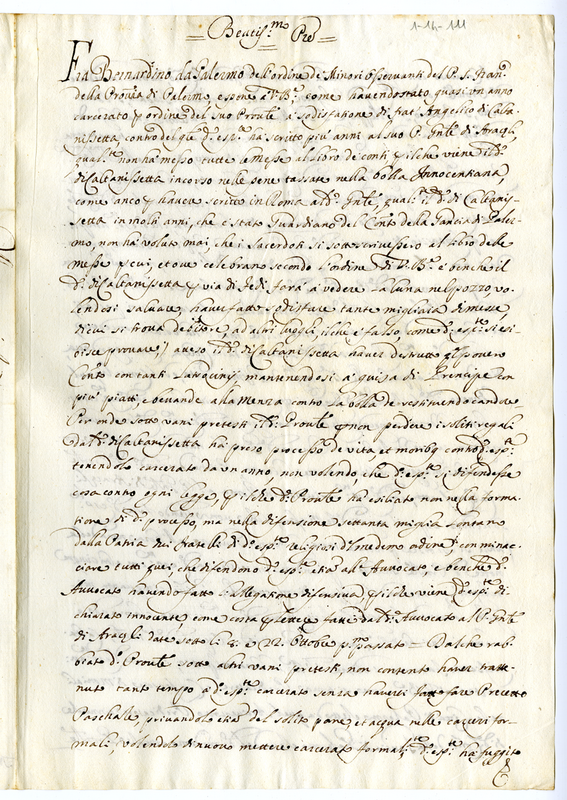 1-14-111
Beatis.mo Pre
Fra Bernardino da Palermo dell'ordine de Minori Osservanti del P. S. Fran.co
della Prouia di Palermo, espone a V. B.ne come havendo stato quasi un anno
carcerato p ordine del suo Proule a sodisfatione di fra Angelico di Calta
nissetta, contro del qle d.o esp.te ha scritto più anni al suo P. Gnle di Araçli,
qual.te non ha messo tutte le messe al libro de conti p il che viene il d.o
di Caltanissetta incorso nelle pene tassate nella bolla Innocentiana,
come anco p havere scritto in Roma a d.o Gnle, qual.te il d.o di Caltanis-
setta in molti anni, che è stato Guardiano del Con.to della Gancia di Paler-
mo, non hà voluto mai, che i Sacerdoti si sottoscrivessero al libro delle
messe p cui, et ove celebrano secondo l'ordine di V. B.ne e benche il
d.o di Caltanissetta p via di fedi farà a vedere la luna nel pozzo, vo-
lendosi salvare, haver fatto sodisfare tante migliaia di messe,
di cui si trova debitore, ad altri luoghi, il che è falso, come d.o esp.te si esi-
bisce provare) atteso il d.o di Caltanissetta haver destrutto ql povero
Con.to con tanti latrocinij, mantenendosi a guisa di Principe con
più piatti, e bevande alla Menza contro la bolla de restituendo candore
Per onde sotto vani pretesti il d.o Proule p non perdere i soliti regali
dal d.o di Caltanissetta ha preso processo de vita et moribq contro d.o esp.te
tenendolo carcerato da un anno, non volendo, che d.o esp.te si difendesse
cosa contro ogni legge, p il che d.o Proule ha esiliato non nella forma-
tione di d.o processo, ma nella difensione settanta miglia lontano
dalla Patria dui fratelli di d.o esp.te religiosi d'l medemo ordine, con minac-
ciare tutti quei, che difendono d.o esp.te etiā all'Avvocato, e benche d.o
Avvocato havendo fatto l'allegatione difensiva p il che viene d.o esp.te di-
chiarato innocente come costa p lettere fatte dal d.o Avvocato al P. Gnle
di Araçli date sotto li 8: e 22. Ottobre p.mo passato = Dal che rab-
biato d.o Proule sotto altri vani pretesti, non contento haver tratte-
nuto tanto tempo a d.o esp.te carcerato senza haverli fatto fare Precetto
Paschale, privandolo etiā del solito pane, et acqua nelle carceri for-
mali, volendolo di nuovo mettere carcerato formal.te d.o esp.te hà fuggito